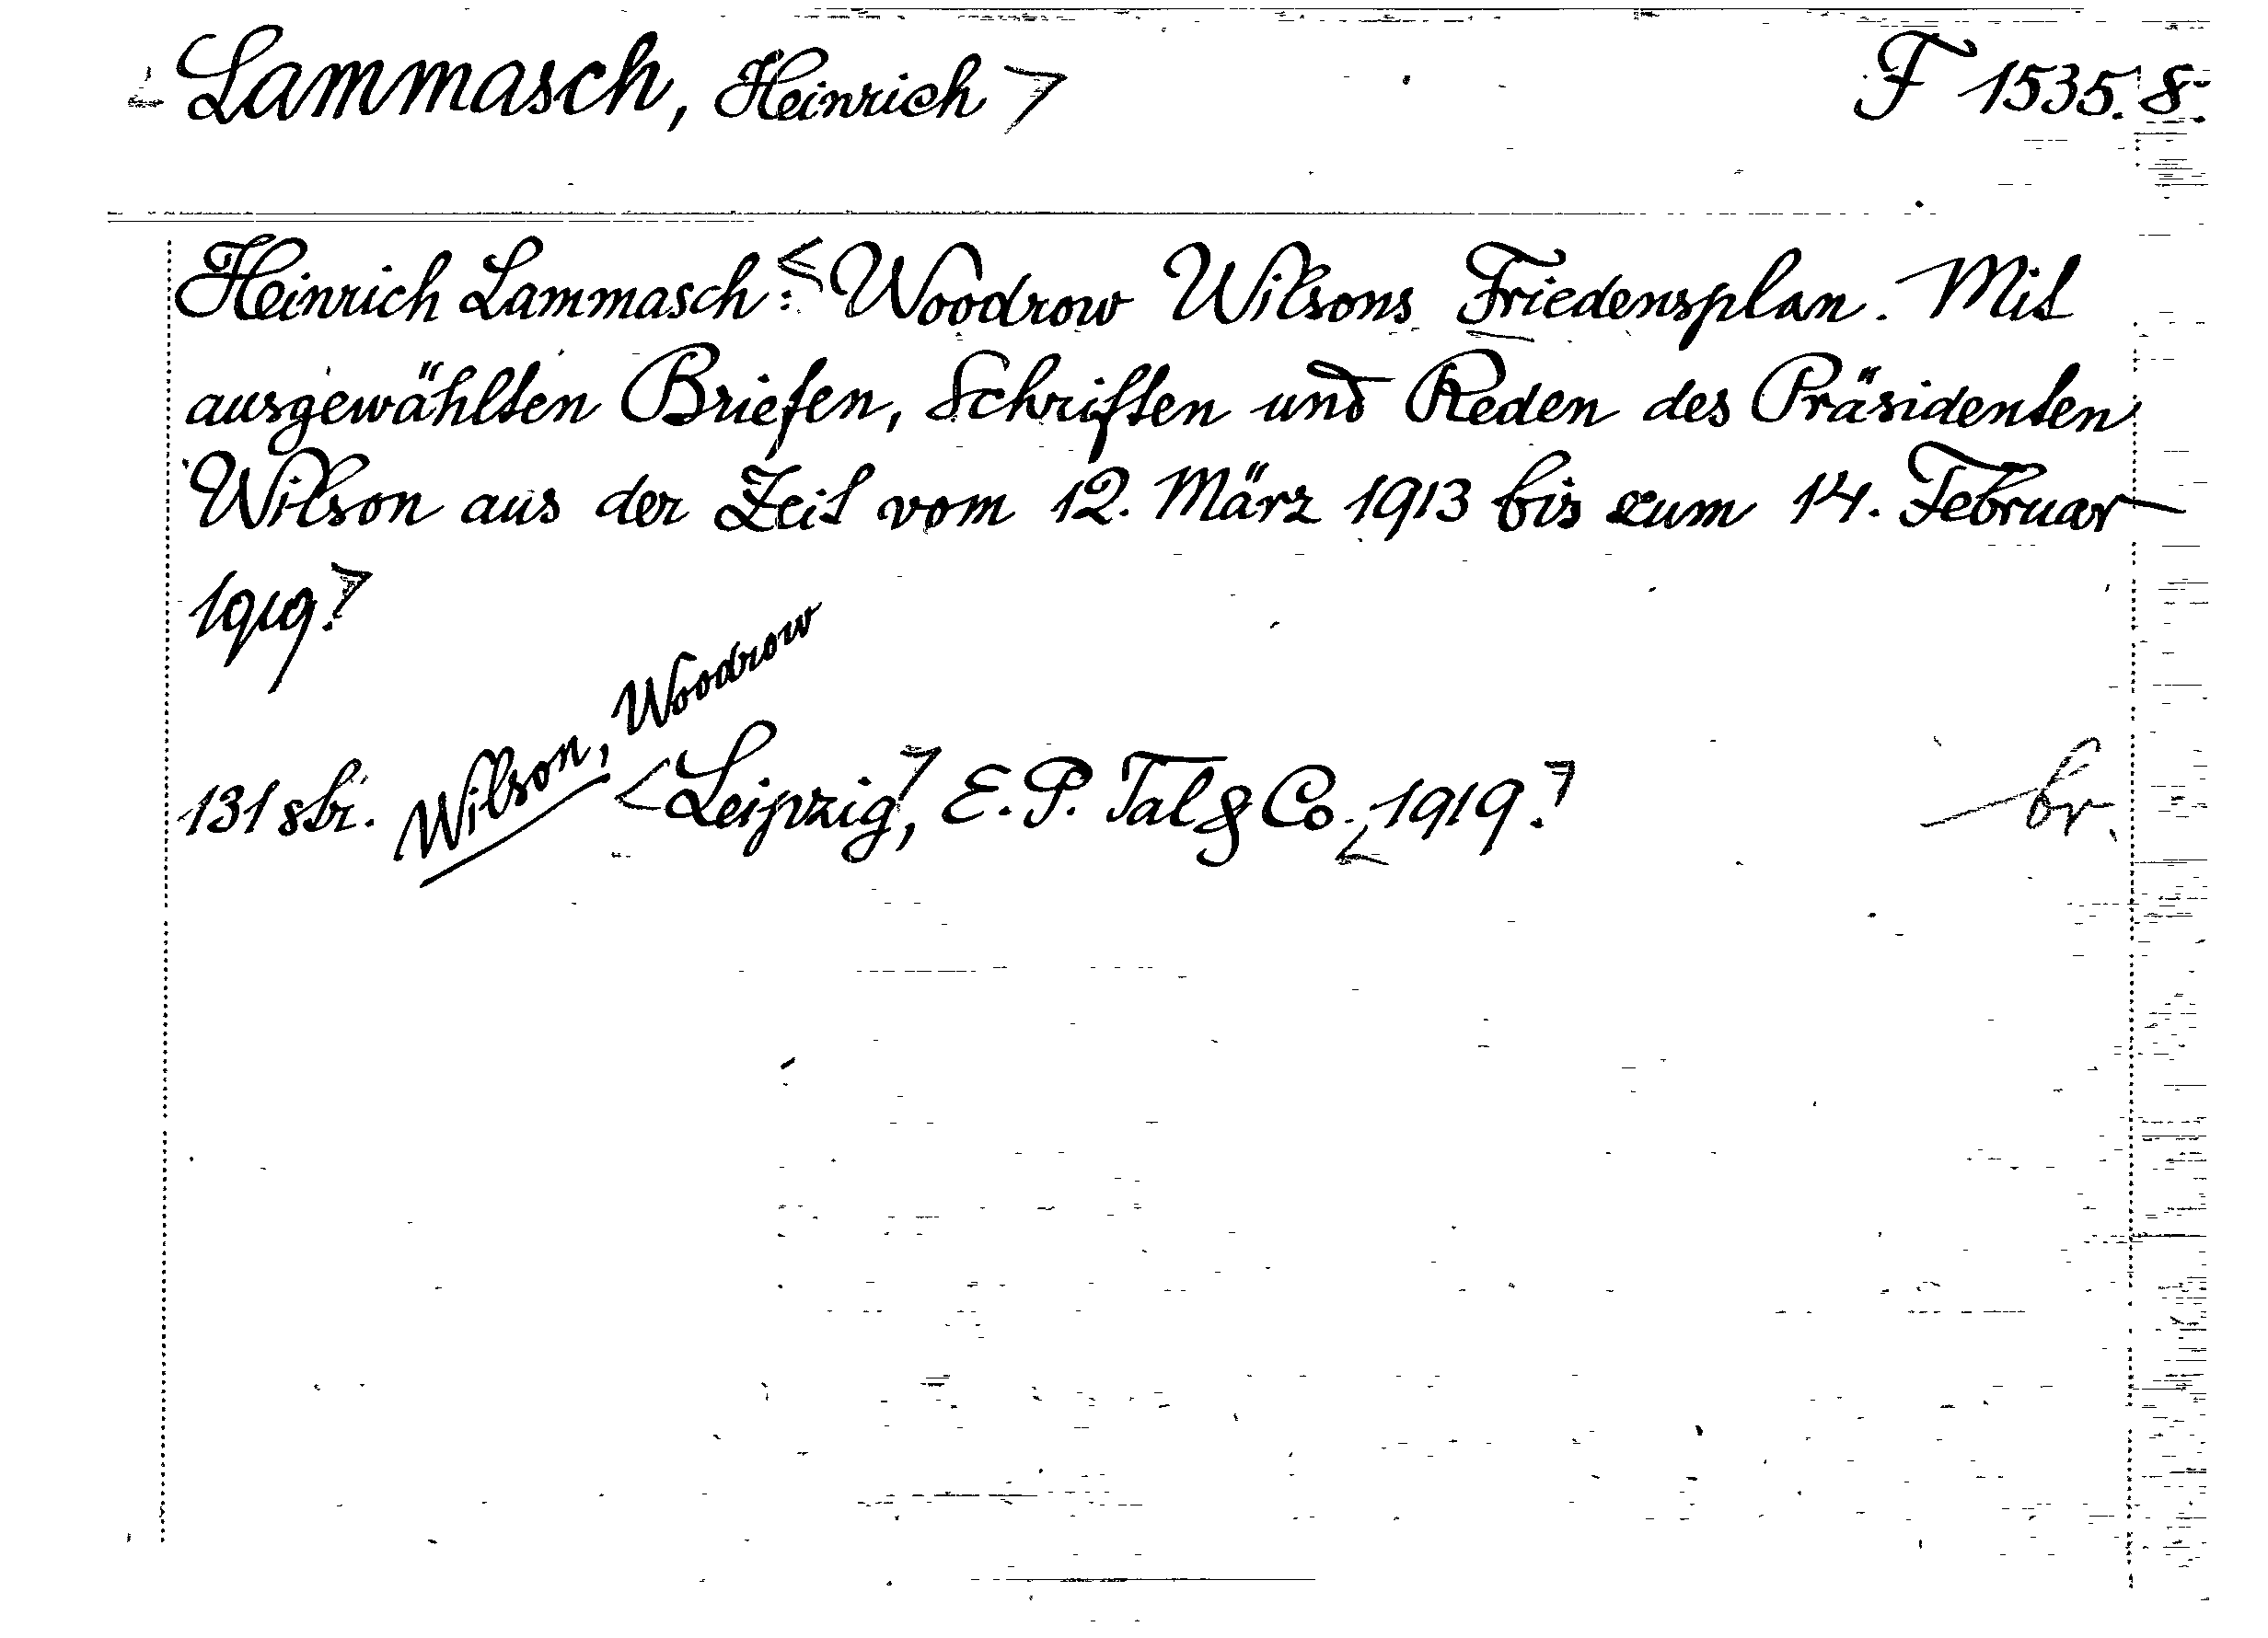 Lammasch, Heinrich F 1535. 8.
Heinrich Lammasch: Woodrow Wilsons Friedensplan. Mit
ausgewählten Briefen, Schriften und Reden des Präsidenten
Wilson aus der Zeit vom 12. März 1913 bis zum 14. Februar
1919.
Wilson, Woodrow
131 sbr. Leipzig, E. P. Tal & Co. 1919. br.